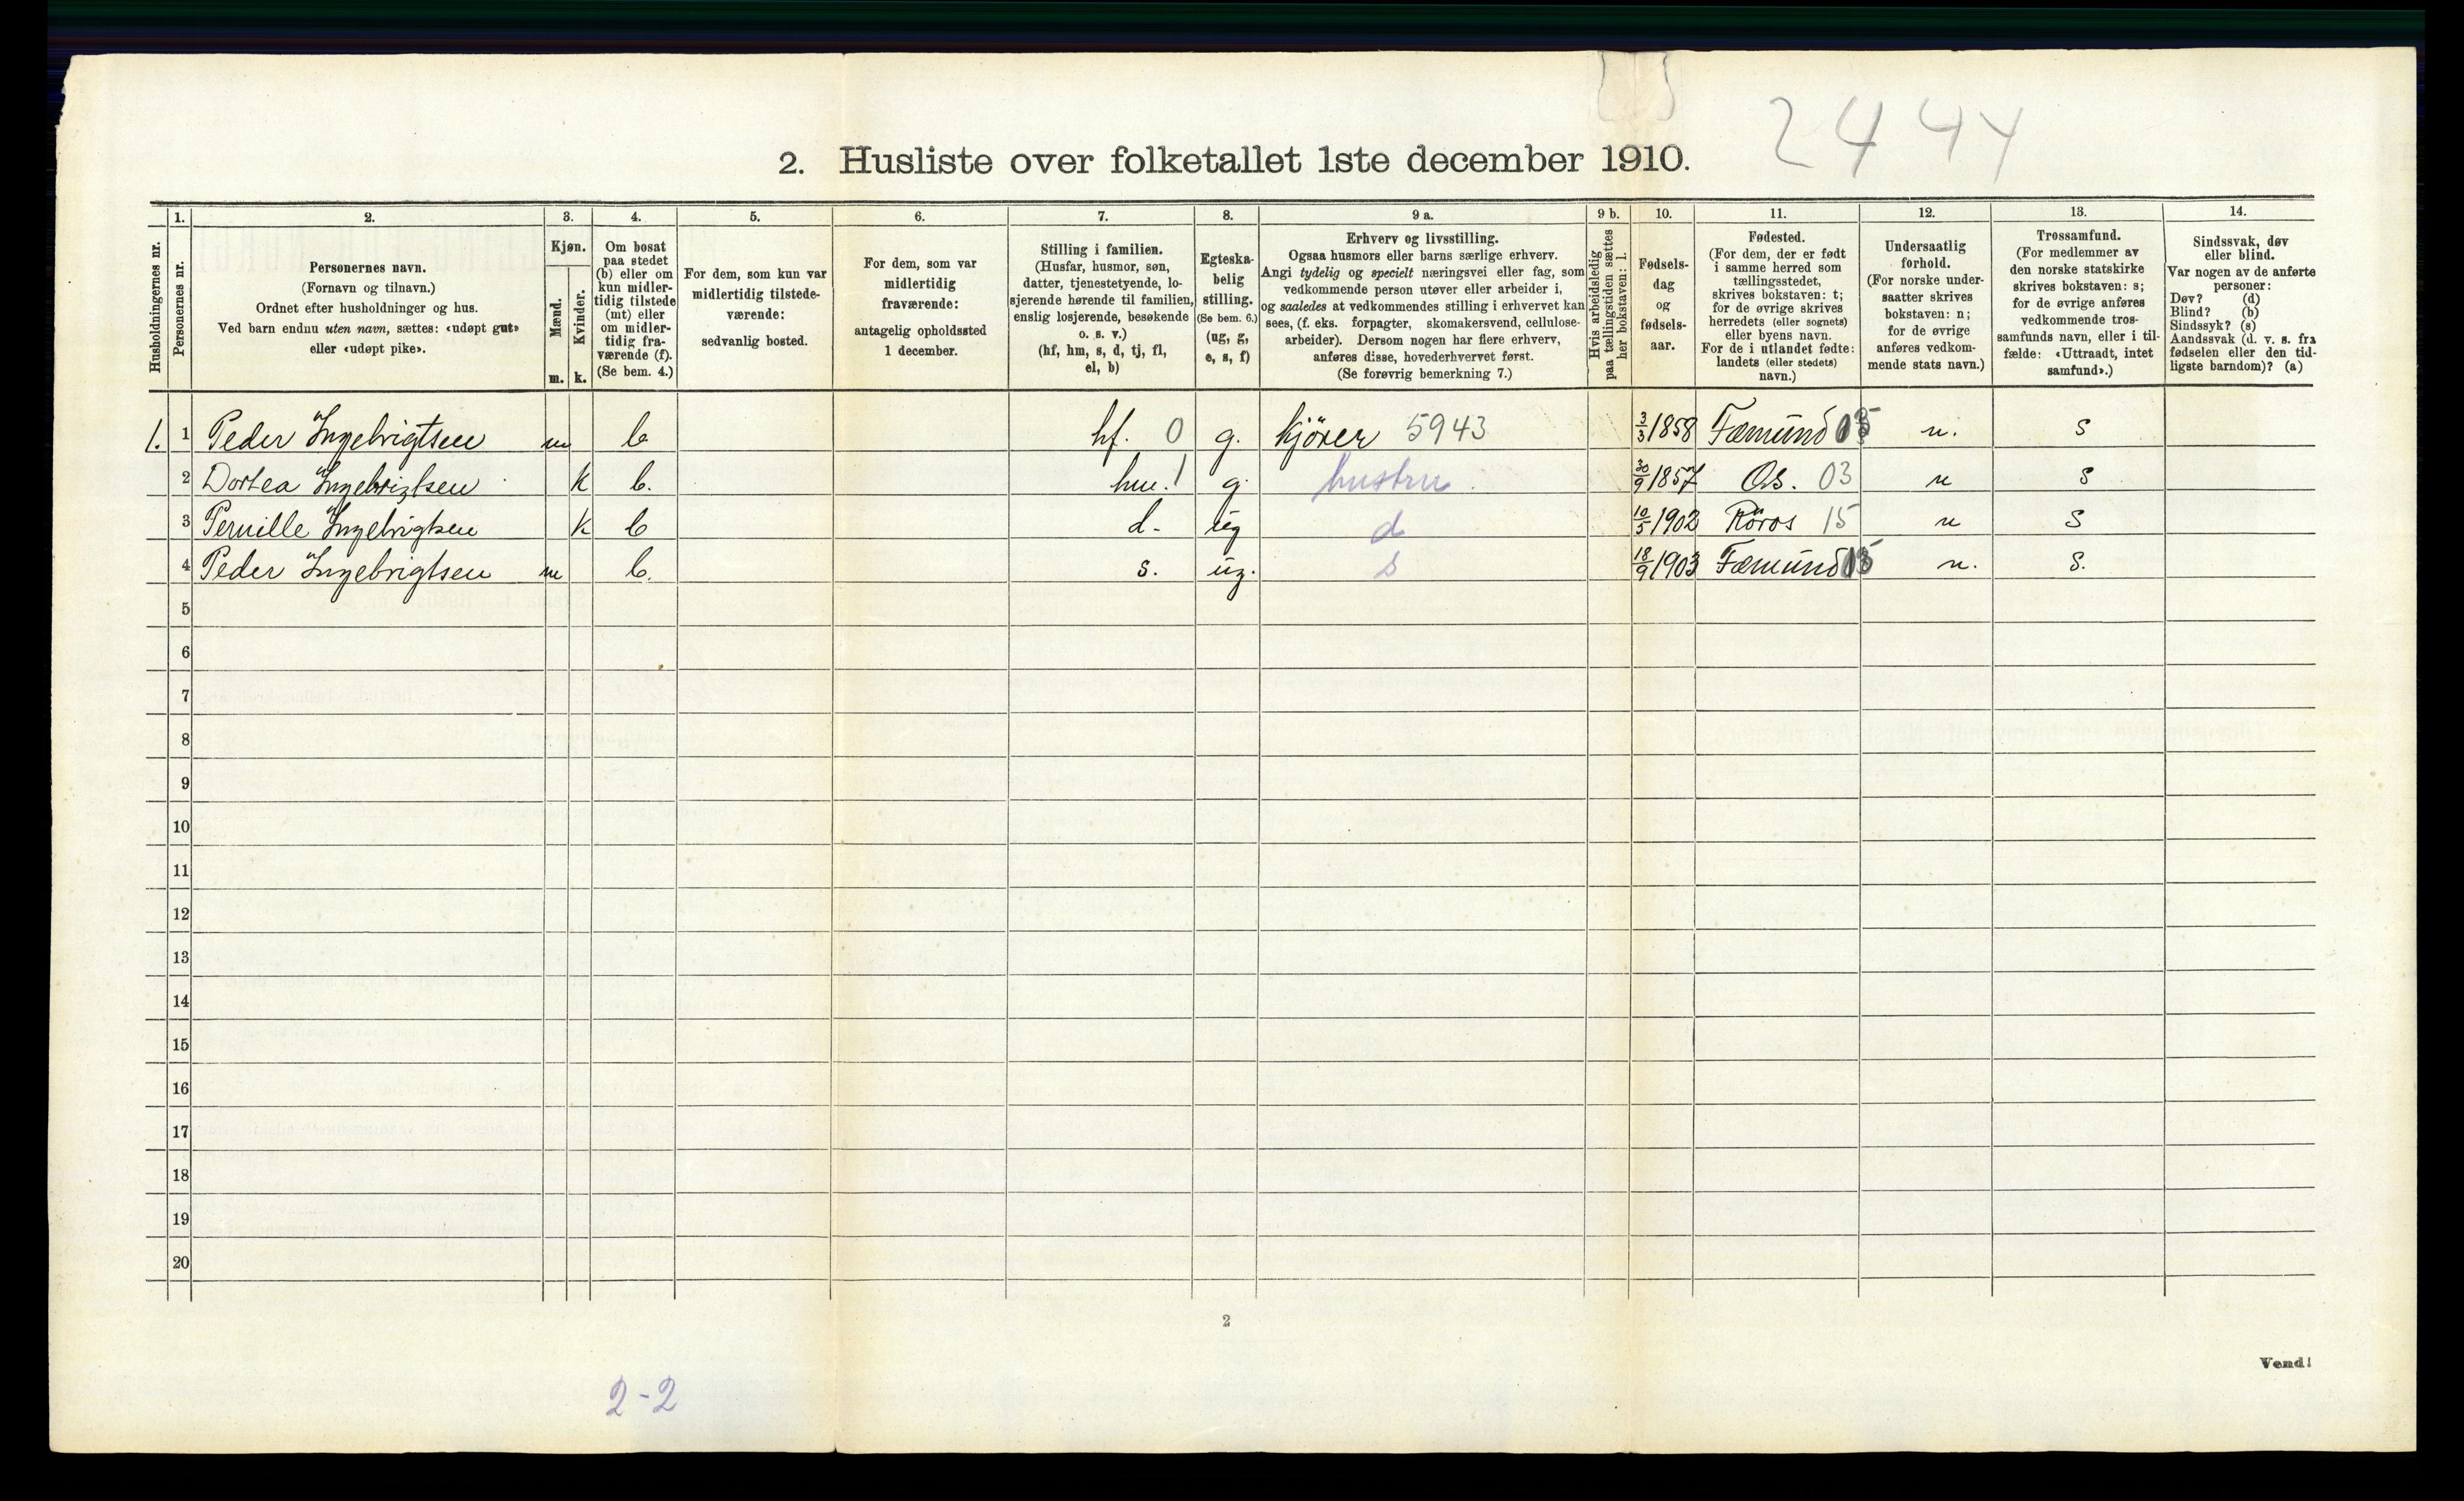 2444
2. Husliste over folketallet 1ste december 1910.
Husholdningernes nr.
1. Personernes nr.
2. Personernes navn.
(Fornavn og tilnavn.)
Ordnet efter husholdninger og hus.
Ved barn endnu uten navn, sættes: «udøpt gut»
eller «udøpt pike».
3. Kjøn.
Mænd. m.
Kvinder. k.
4. Om bosat
paa stedet
(b) eller om
kun midler-
tidig tilstede
(mt) eller
om midler-
tidig fra-
værende (f).
(Se bem. 4.)
5. For dem, som kun var
midlertidig tilstede-
værende:
sedvanlig bosted.
6. For dem, som var
midlertidig
fraværende:
antagelig opholdssted
1 december.
7. Stilling i familien.
(Husfar, husmor, søn,
datter, tjenestetyende, lo-
sjerende hørende til familien,
enslig losjerende, besøkende
o. s. v.)
(hf, hm, s, d, tj, fl,
el, b)
8. Egteska-
belig
stilling.
(Se bem. 6.)
(ug, g,
e, s, f)
9 a. Erhverv og livsstilling.
Ogsaa husmors eller barns særlige erhverv.
Angi tydelig og specielt næringsvei eller fag, som
vedkommende person utøver eller arbeider i,
og saaledes at vedkommendes stilling i erhvervet kan
sees, (f. eks. forpagter, skomakersvend, cellulose-
arbeider). Dersom nogen har flere erhverv,
anføres disse, hovederhvervet først.
(Se forøvrig bemerkning 7.)
9 b. Hvis arbeidsledig
paa tællingstiden sættes
her bokstaven: l.
10. Fødsels-
dag
og
fødsels-
aar.
11. Fødested.
(For dem, der er født
i samme herred som
tællingsstedet,
skrives bokstaven: t;
for de øvrige skrives
herredets (eller sognets)
eller byens navn.
For de i utlandet fødte:
landets (eller stedets)
navn.)
12. Undersaatlig
forhold.
(For norske under-
saatter skrives
bokstaven: n;
for de øvrige
anføres vedkom-
mende stats navn.)
13. Trossamfund.
(For medlemmer av
den norske statskirke
skrives bokstaven: s;
for de øvrige anføres
vedkommende tros-
samfunds navn, eller i til-
fælde: «Uttraadt, intet
samfund».)
14. Sindssvak, døv
eller blind.
Var nogen av de anførte
personer:
Døv? (d)
Blind? (b)
Sindssyk? (s)
Aandssvak (d. v. s. fra
fødselen eller den tid-
ligste barndom)? (a)
1. 1 Peder Ingebrigtsen m b hf. 0 g. Kjörer 5943 3/3 1858 Fæmund 15 n. s
2 Dortea Ingebrigtsen k b. hm. 1 g. hustru 30/9 1857 Os. 03 n s
3 Pernille Ingebrigtsen k b d- ug d 10/5 1902 Röros 15 n s
4 Peder Ingebrigtsen m b. s. ug. s 18/9 1903 Fæmund 15 n. s.
5
6
7
8
9
10
11
12
13
14
15
16
17
18
19
20
2
Vend!
2-2